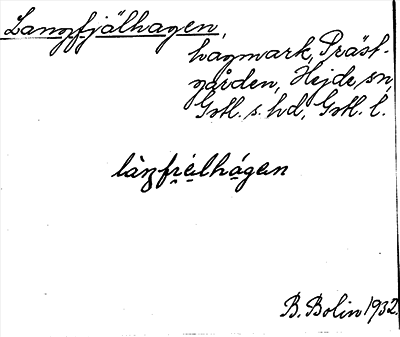 Langfjälhagen,
hagmark, Präst-
gården, Hejde sn,
Gotl. s. hd, Gotl. l.
làŋfi̯ęlhágen
B. Bolin 1932.